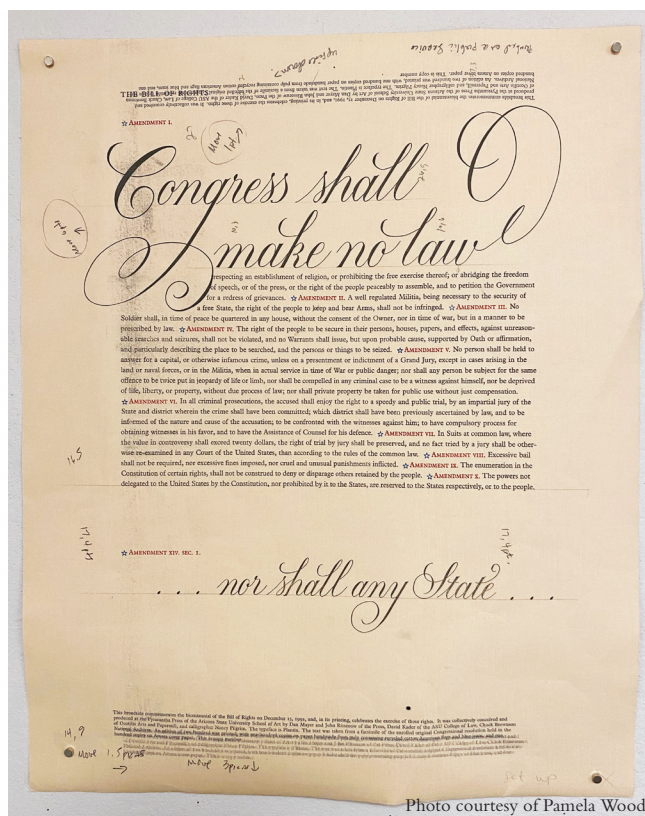 upside down?
THE BILL OF RIGHTS
☆ AMENDMENT I.
Move
Congress shall
make no law
respecting an establishment of religion, or prohibiting the free exercise thereof; or abridging the freedom
of speech, or of the press, or the right of the people peaceably to assemble, and to petition the Government
for a redress of grievances. ☆ AMENDMENT II. A well regulated Militia, being necessary to the security of
a free State, the right of the people to keep and bear Arms, shall not be infringed. ☆ AMENDMENT III. No
Soldier shall, in time of peace be quartered in any house, without the consent of the Owner, nor in time of war, but in a manner to be
prescribed by law. ☆ AMENDMENT IV. The right of the people to be secure in their persons, houses, papers, and effects, against unreason-
able searches and seizures, shall not be violated, and no Warrants shall issue, but upon probable cause, supported by Oath or affirmation,
and particularly describing the place to be searched, and the persons or things to be seized. ☆ AMENDMENT V. No person shall be held to
answer for a capital, or otherwise infamous crime, unless on a presentment or indictment of a Grand Jury, except in cases arising in the
land or naval forces, or in the Militia, when in actual service in time of War or public danger; nor shall any person be subject for the same
offence to be twice put in jeopardy of life or limb, nor shall be compelled in any criminal case to be a witness against himself, nor be deprived
of life, liberty, or property, without due process of law; nor shall private property be taken for public use without just compensation.
☆ AMENDMENT VI. In all criminal prosecutions, the accused shall enjoy the right to a speedy and public trial, by an impartial jury of the
State and district wherein the crime shall have been committed; which district shall have been previously ascertained by law, and to be
informed of the nature and cause of the accusation; to be confronted with the witnesses against him; to have compulsory process for
obtaining witnesses in his favor, and to have the Assistance of Counsel for his defence. ☆ AMENDMENT VII. In Suits at common law, where
the value in controversy shall exceed twenty dollars, the right of trial by jury shall be preserved, and no fact tried by a jury shall be other-
wise re-examined in any Court of the United States, than according to the rules of the common law. ☆ AMENDMENT VIII. Excessive bail
shall not be required, nor excessive fines imposed, nor cruel and unusual punishments inflicted. ☆ AMENDMENT IX. The enumeration in the
Constitution of certain rights, shall not be construed to deny or disparage others retained by the people. ☆ AMENDMENT X. The powers not
delegated to the United States by the Constitution, nor prohibited by it to the States, are reserved to the States respectively, or to the people.
16.5
☆ AMENDMENT XIV. SEC. I.
... nor shall any State ...
This broadside commemorates the bicentennial of the Bill of Rights on December 15, 1991, and, in its printing, celebrates the exercise of those rights. It was collectively conceived and
produced at the Pyracantha Press of the Arizona State University School of Art by Dan Mayer and John Risseeuw of the Press, David Kader of the ASU College of Law, Chuck
14,9
Move 1.5
Move 3 picas
Photo courtesy of Pamela Wood